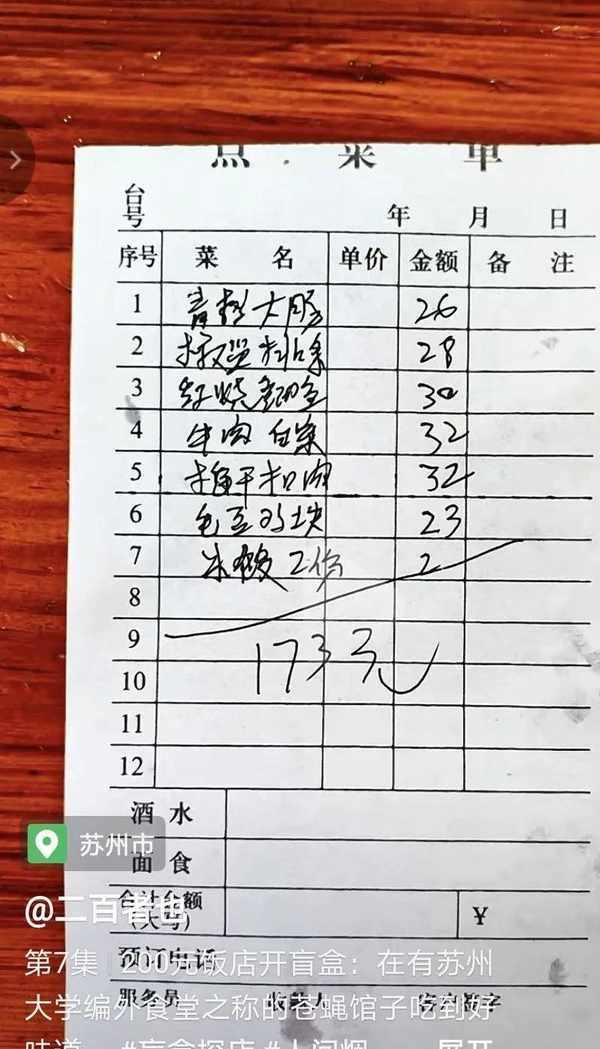 点菜单
台号 年 月 日
序号 菜名 单价 金额 备注
1 青椒大肠 26
2 椒盐排条 28
3 红烧鳊鱼 30
4 牛肉白菜 32
5 梅干扣肉 32
6 毛豆鸡块 23
7 米饭2份 2
8
9
173元
10
11
12
酒水
苏州市
面食
@二百者也
合计金额
(大写) ¥
第7集 200元饭店开盲盒:在有苏州
预订电话
大学编外食堂之称的苍蝇馆子吃到好
服务员 客户签字
味道 #盲盒探店 #人间烟 展开